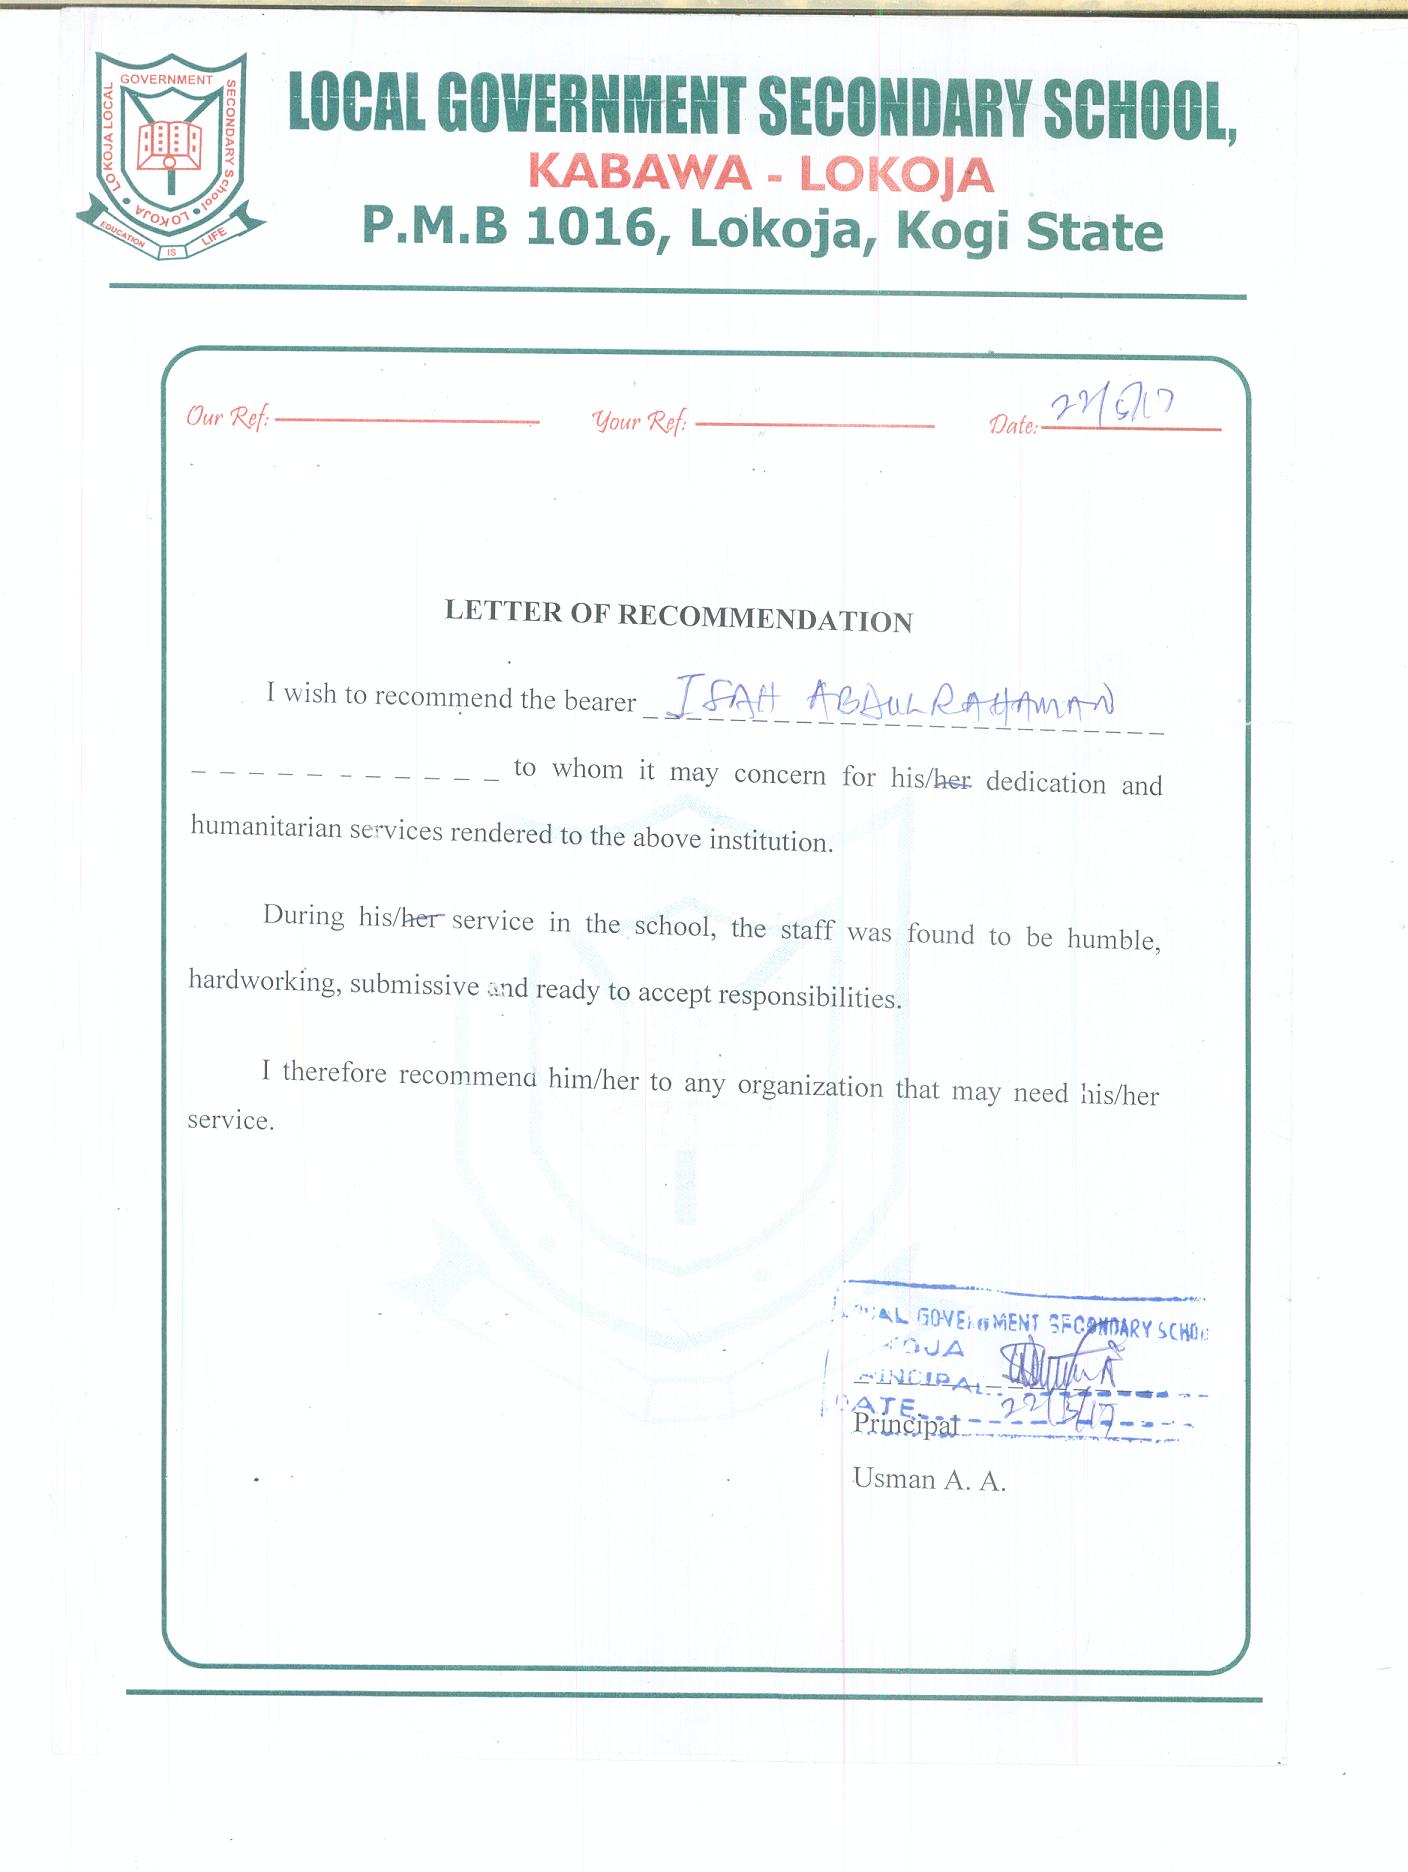 GOVERNMENT
LOKOJA LOCAL
SECONDARY School
LOKOJA
EDUCATION IS LIFE
LOCAL GOVERNMENT SECONDARY SCHOOL,
KABAWA - LOKOJA
P.M.B 1016, Lokoja, Kogi State
Our Ref: Your Ref: Date: 22/5/17
LETTER OF RECOMMENDATION
I wish to recommend the bearer ISAH ABDULRAHAMAN
to whom it may concern for his/her dedication and
humanitarian services rendered to the above institution.
During his/her service in the school, the staff was found to be humble,
hardworking, submissive and ready to accept responsibilities.
I therefore recommend him/her to any organization that may need his/her
service.
LOCAL GOVERNMENT SECONDARY SCHOO
KOJA
PRINCIPAL
DATE 22/5/17
Principal
Usman A. A.